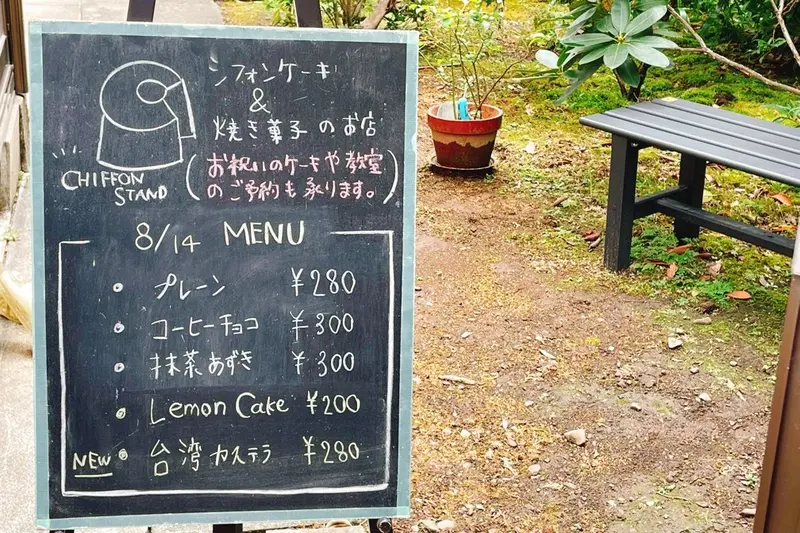 シフォンケーキ
&
焼き菓子のお店
(お祝いのケーキや教室
のご予約も承ります。)
CHIFFON
STAND
8/14 MENU
・プレーン ¥280
・コーヒーチョコ ¥300
・抹茶あずき ¥300
・Lemon Cake ¥200
NEW・台湾カステラ ¥280